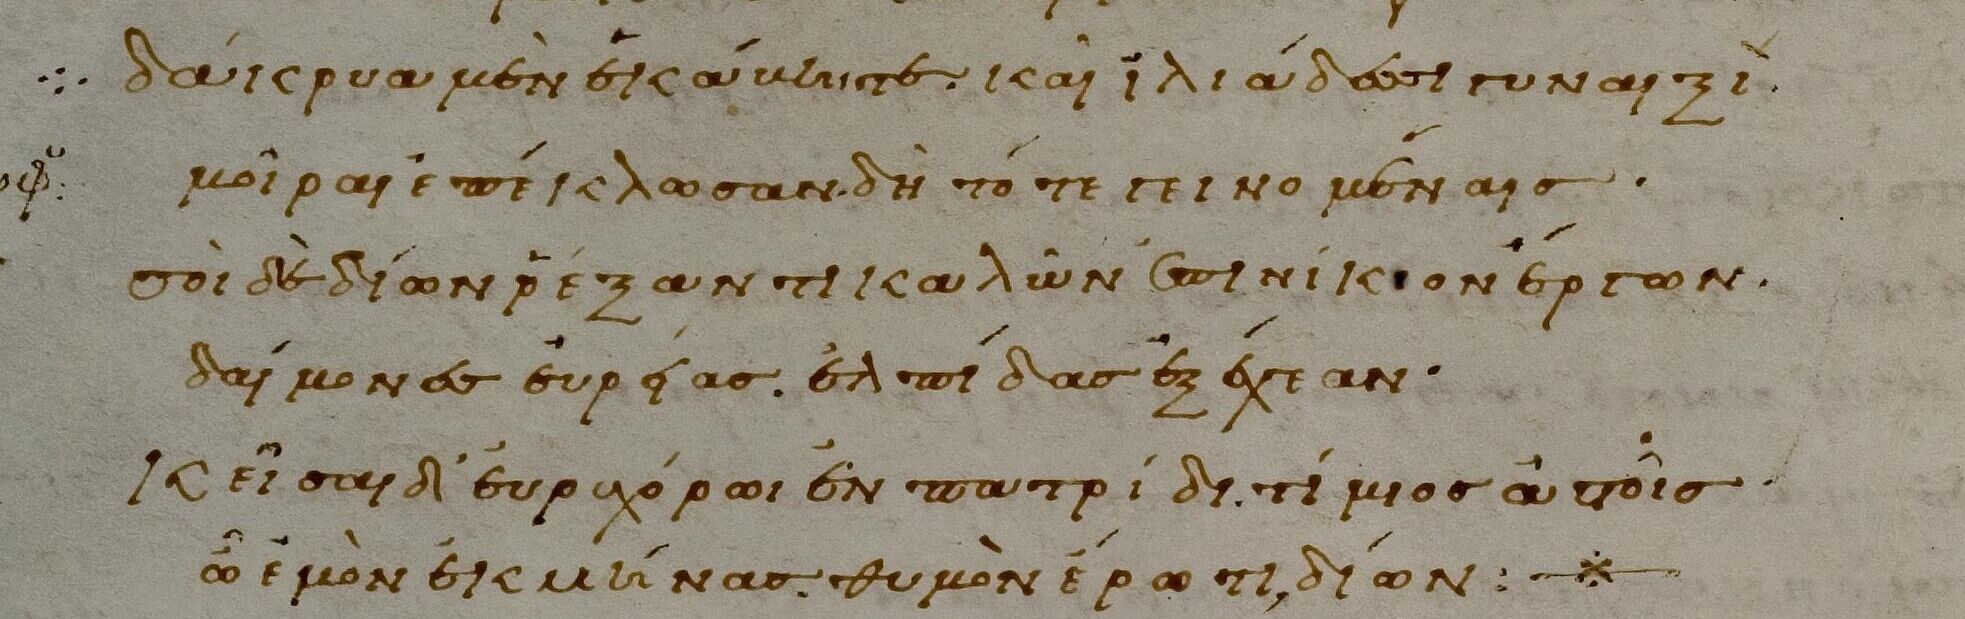 δάκρυα μὲν ἑκάβηι τε. καὶ ἰλιάδεσι γυναιξί.
μοῖραι ἐπέκλωσαν. δὴ τότε γεινομέναις.
σοὶ δὲ δίων ῥέξαντι καλῶν ἐπινίκιον ἔργων.
δαίμονες εὐρείας. ἐλπίδας ἐξέχεαν.
κεῖσαι δ' εὐρυχόρωι ἐν πατρίδι. τίμιος ἀστοῖς.
ὦ ἐμὸν ἐκμήνας. θυμὸν ἔρωτι, δίων: